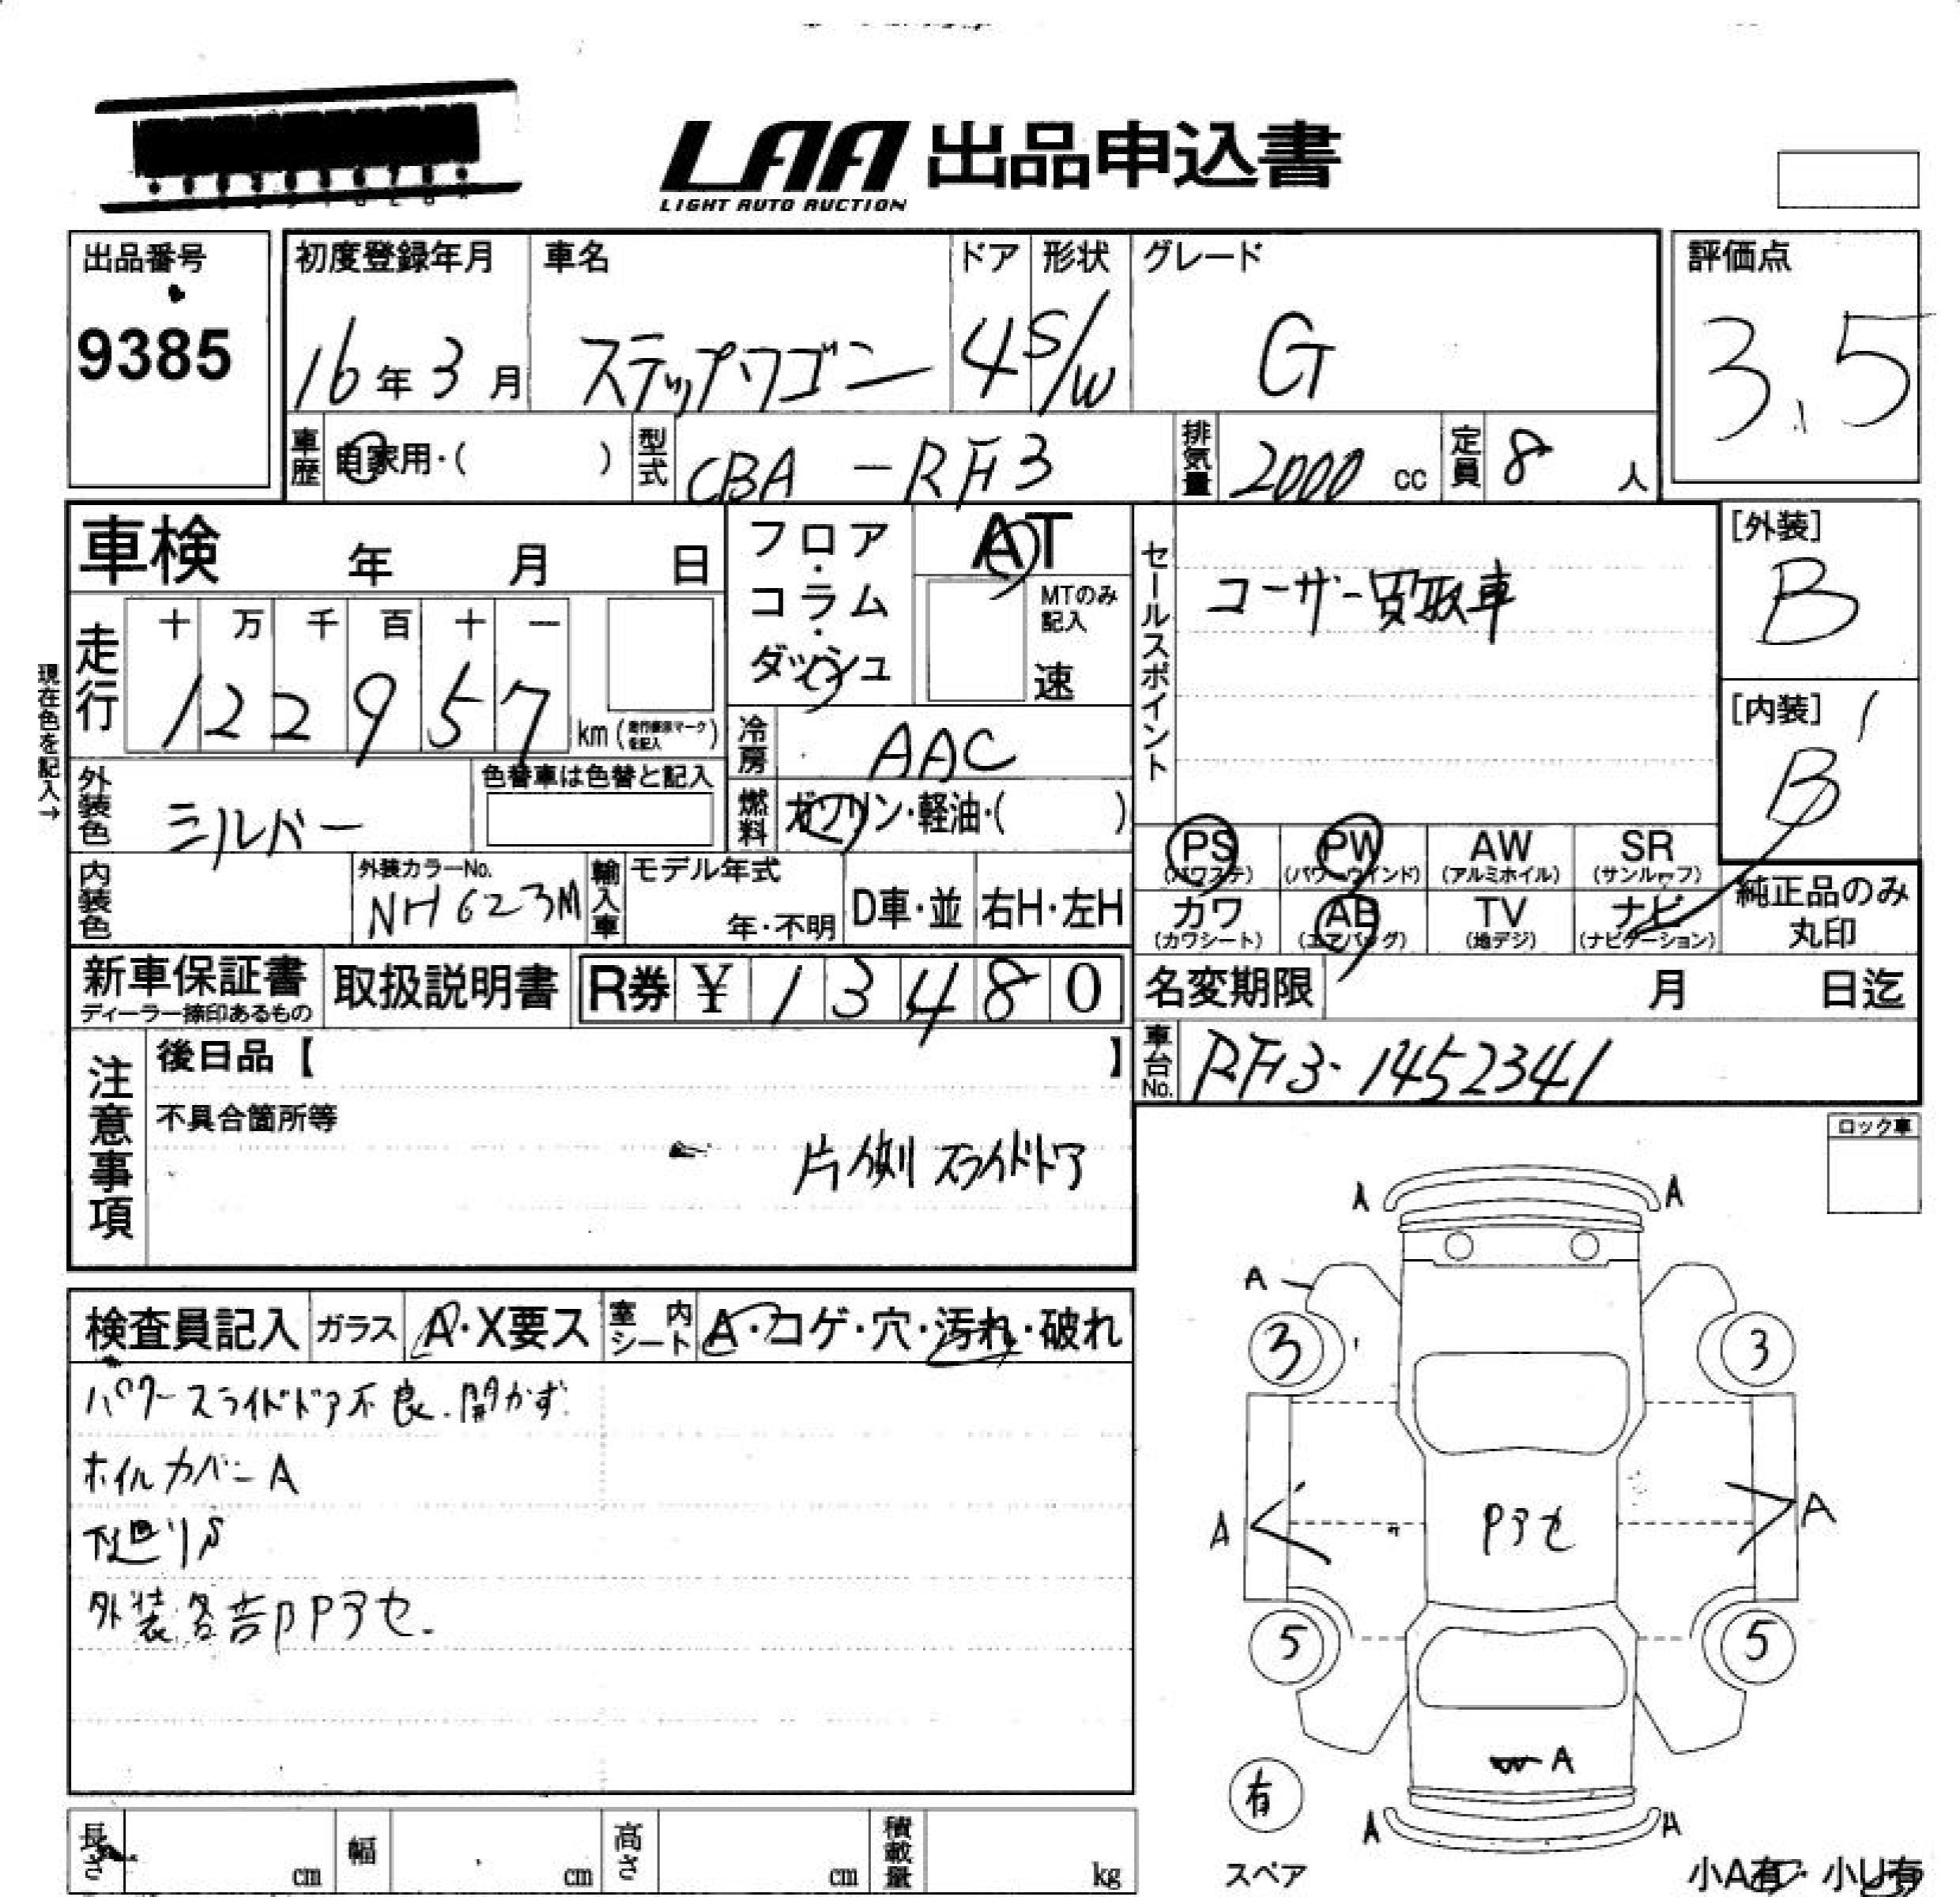 LAA 出品申込書
LIGHT AUTO AUCTION
出品番号
9385
初度登録年月
16年3月
車名
ステップワゴン
ドア
4
形状
S/W
グレード
G
評価点
3.5
車歴
自家用・( )
型式
CBA-RF3
排気量
2000 cc
定員
8 人
車検 年 月 日
フロア・コラム・ダッシュ
AT
MTのみ記入
速
セールスポイント
ユーザー買取車
[外装]
B
[内装]
B
現在色を記入→
走行
十 万 千 百 十 一
1 2 2 9 5 7
km
冷房
AAC
外装色
シルバー
色替車は色替と記入
燃料
ガソリン・軽油・( )
PS
(パワステ)
PW
(パワーウインド)
AW
(アルミホイル)
SR
(サンルーフ)
内装色
外装カラーNo.
NH623M
輸入車
モデル年式
年・不明
D車・並
右H・左H
カワ
(カワシート)
AB
(エアバッグ)
TV
(地デジ)
ナビ
(ナビゲーション)
純正品のみ
丸印
新車保証書
ディーラー捺印あるもの
取扱説明書
R券 ¥ 1 3 4 8 0
名変期限 月 日迄
車台No.
RF3-1452341
注意事項
後日品【 】
不具合箇所等
片側スライドドア
ロック車
検査員記入
ガラス
A・X要ス
室内シート
A・コゲ・穴・汚れ・破れ
パワースライドドア不良.開かず.
ホイルカバーA
下廻りS
外装各部Pアセ.
A A
A
3 3
A Pアセ A
5 5
A
有
A A
スペア
小A有・小U有
長さ cm
幅 cm
高さ cm
積載量 kg